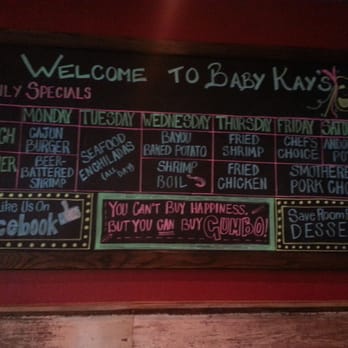 WELCOME TO BABY KAY'S
ILY SPECIALS
MONDAY TUESDAY WEDNESDAY THURSDAY FRIDAY SAT
CH CAJUN BURGER SEAFOOD ENCHILADAS (ALL DAY) BAYOU BAKED POTATO FRIED SHRIMP CHEF'S CHOICE
ER BEER-BATTERED SHRIMP SHRIMP BOIL FRIED CHICKEN SMOTHERE PORK CHO
LIKE US ON
CEBOOK
YOU CAN'T BUY HAPPINESS,
BUT YOU CAN BUY GUMBO!
SAVE ROOM
DESSE